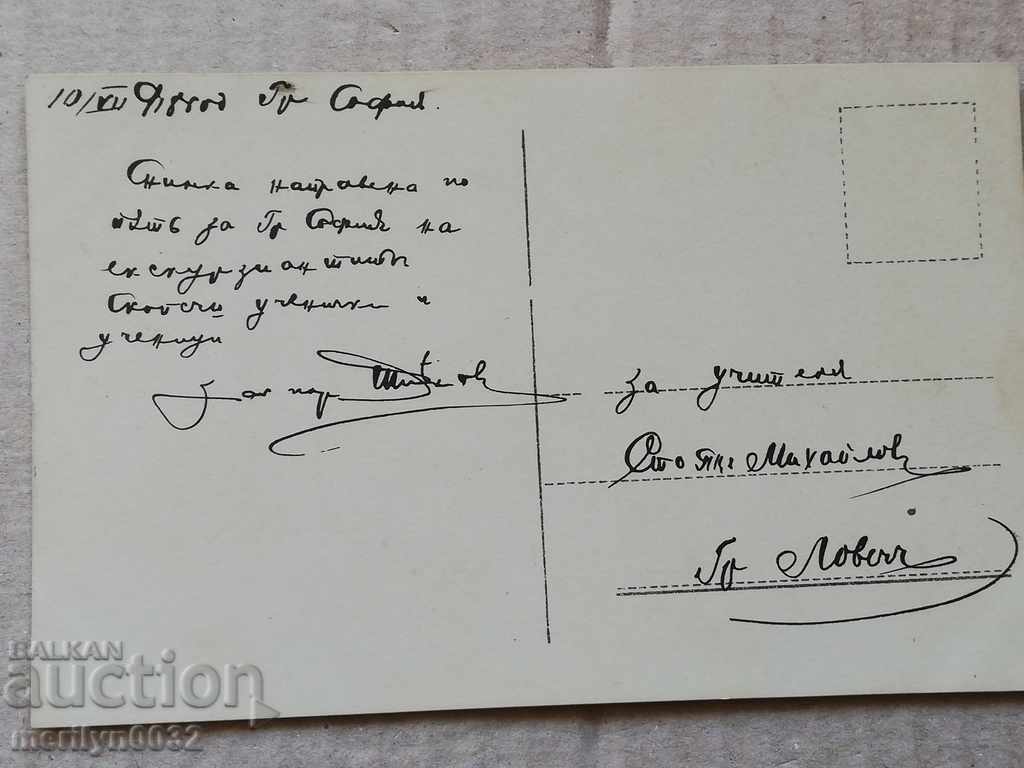 10/XII Гр София.
Снимка направена по
пътъ за Гр София на
екскурзиантитѣ
ученички и
ученици
за учителя
Стоянъ Михайловъ
Гр Ловечъ
BALKAN
auction
merilyn0032